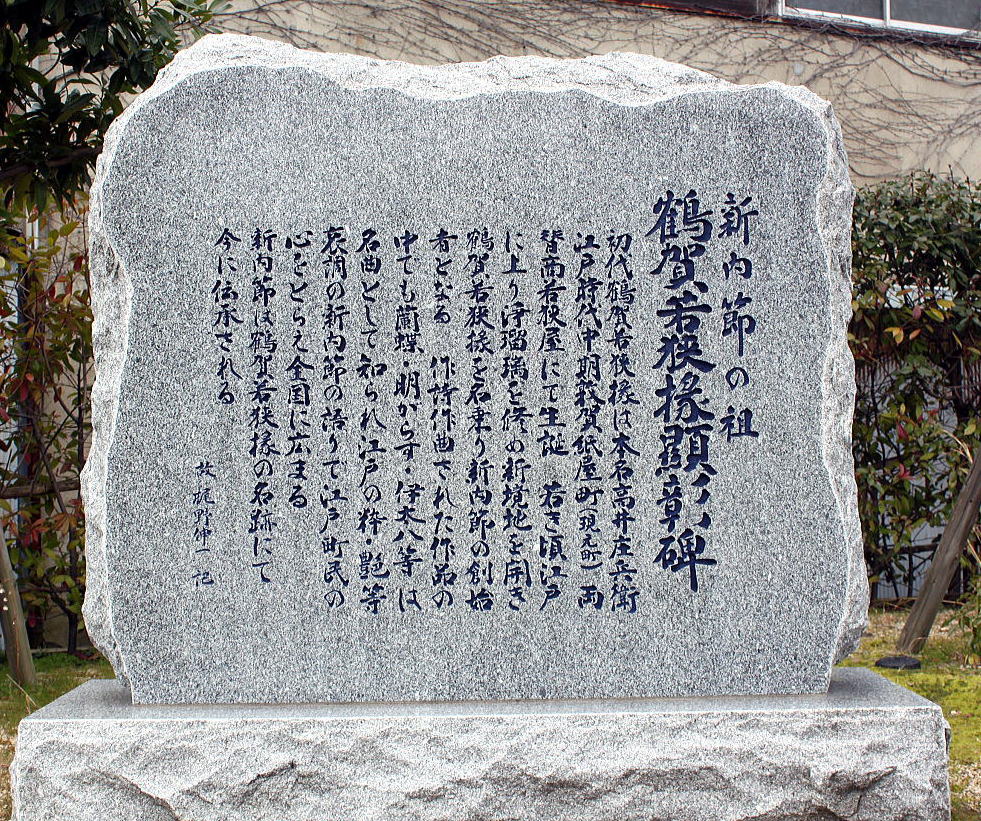 新内節の祖
鶴賀若狭掾顕彰碑
初代鶴賀若狭掾は本名高井庄兵衛
江戸時代中期敦賀紙屋町(現元町)両
替商若狭屋にて生誕 若き頃江戸
に上り浄瑠璃を修め新境地を開き
鶴賀若狭掾を名乗り新内節の創始
者となる 作詩作曲された作品の
中でも蘭蝶、明がらす・伊太八等は
名曲として知られ江戸の粋・艶等
哀調の新内節の語りで江戸町民の
心をとらえ全国に広まる
新内節は鶴賀若狭掾の名跡にて
今に伝承される
故 梶野伸一 記